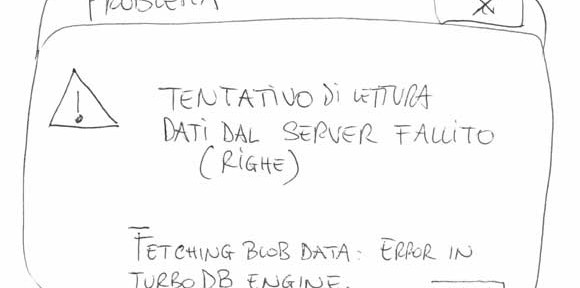 PROBLEMA
X
TENTATIVO Di LETTURA
DATi DAL SERVER FALLITO
(RiGHE)
FETCHING BLOB DATA: ERROR IN
TURBO DB ENGINE.